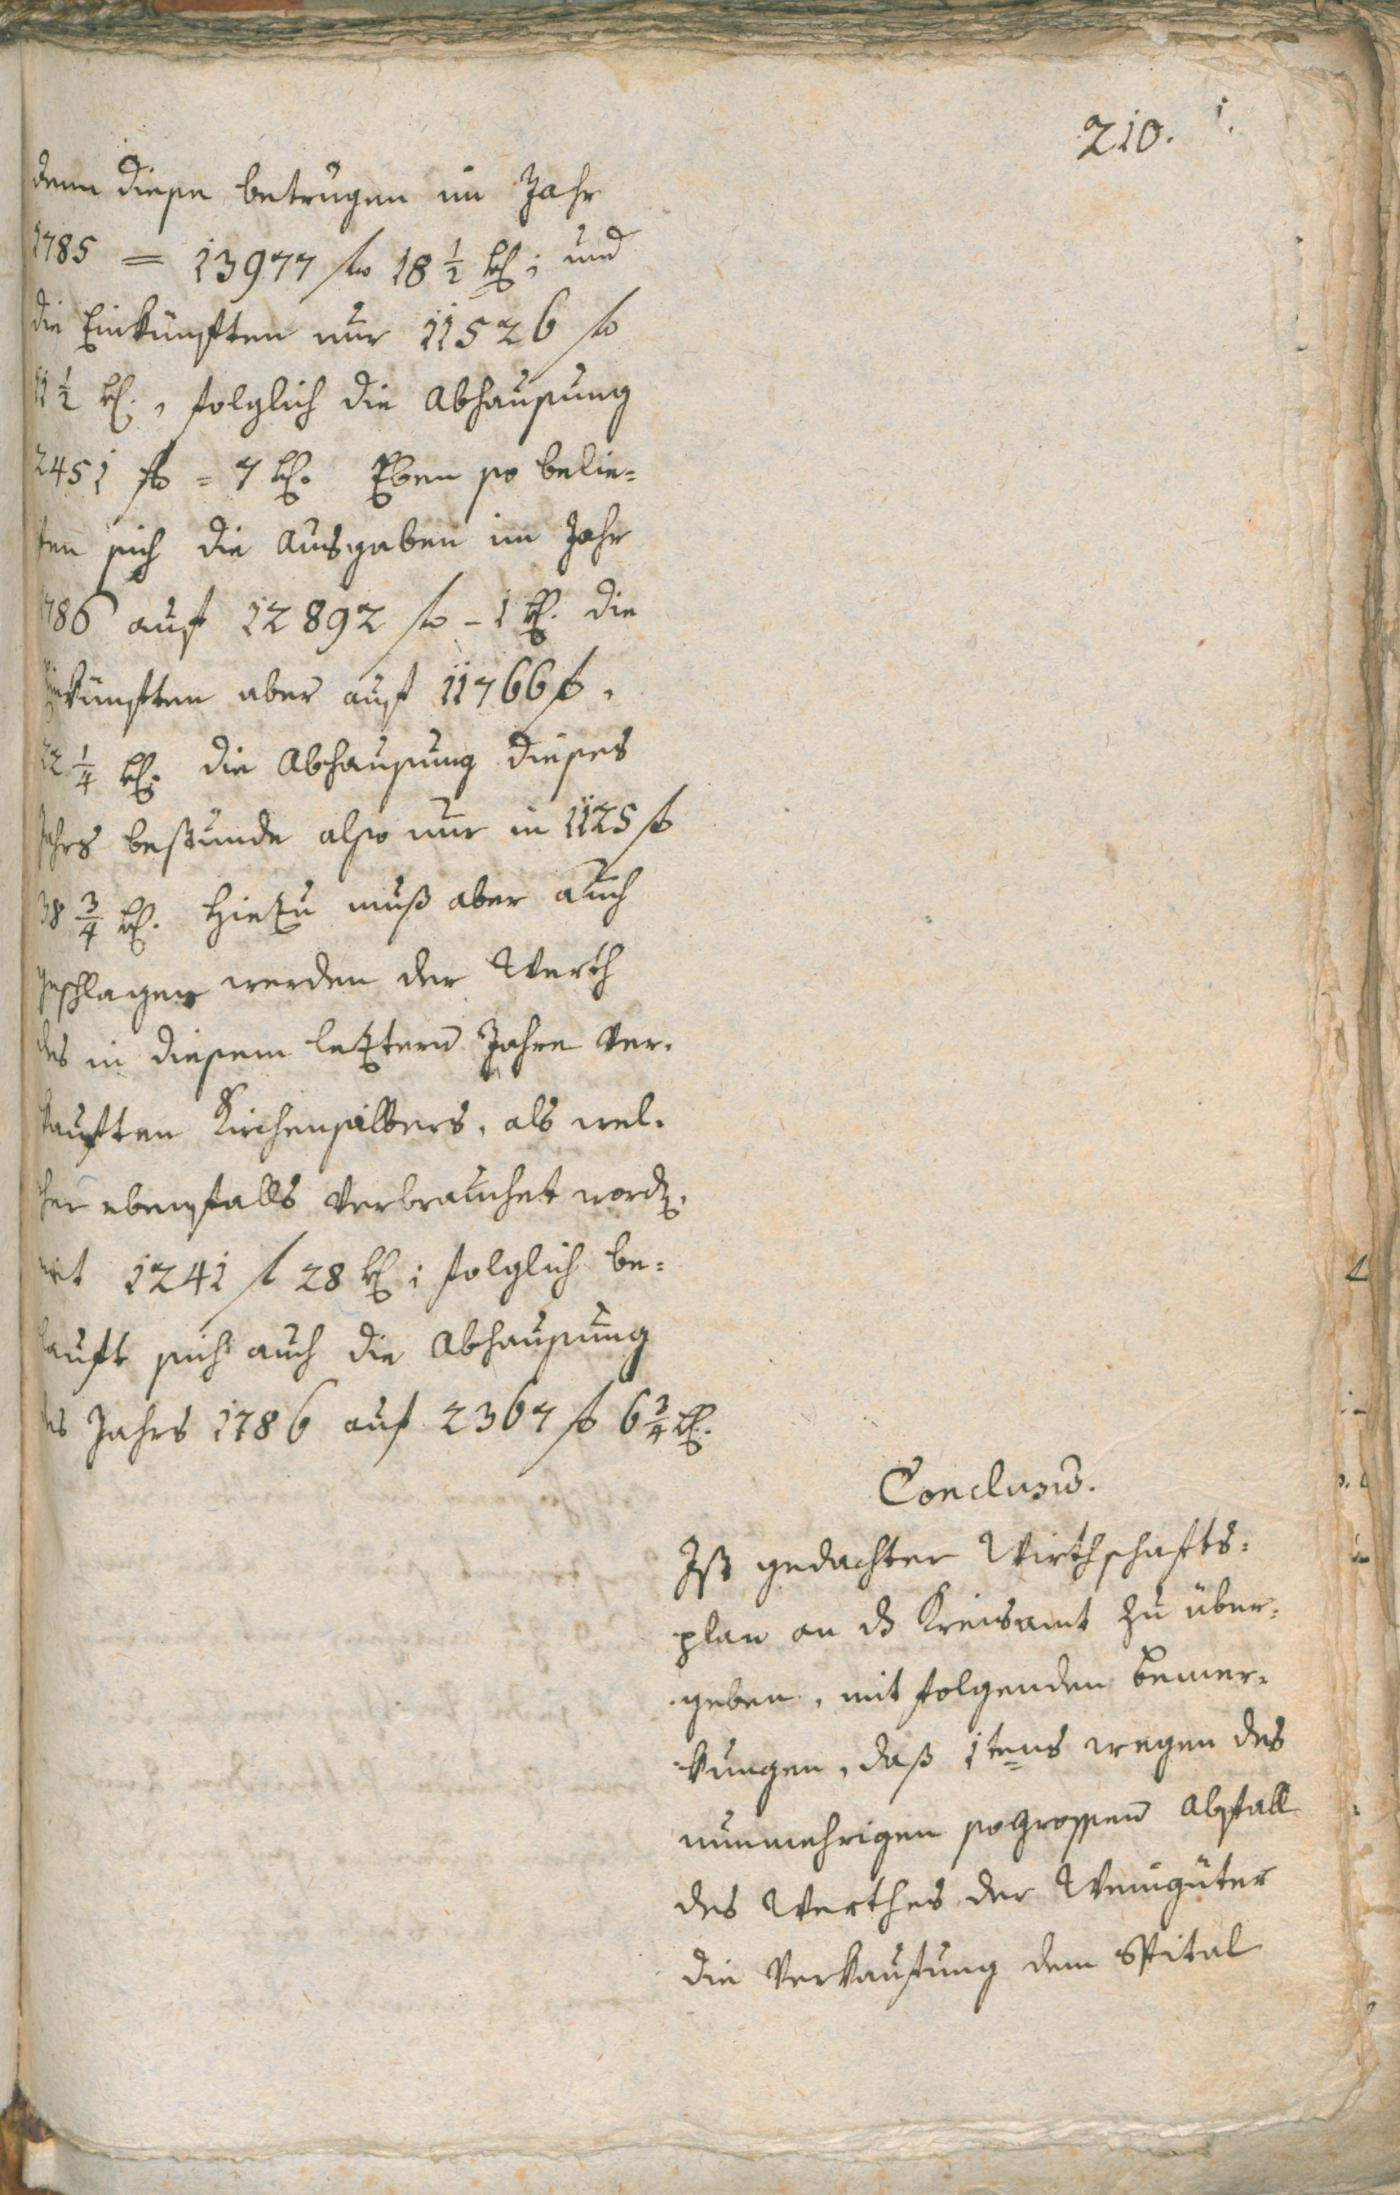 210.
denn diese betrugen im Jahr
1785 = 13977 f 18 1/2 kr; und
die Einkünften nur 11526 f
11 1/2 kr., folglich die Abhausung
2451 f = 7 kr. Eben so belie=
fen sich die Ausgaben im Jahr
1786 auf 12892 f - 1 kr. die
Einkünften aber auf 11766 f,
22 1/4 kr. die Abhausung dieses
Jahrs bestunde also nur in 1125 f
38 3/4 kr. Hiezu muß aber auch
geschlagen werden der Werth
des in diesem letztern Jahre ver-
kauften Kirchensilbers, als wel-
cher ebenfalls verbrauchet word.
mit 1241 f 28 kr; folglich be=
lauft sich auch die Abhausung
des Jahrs 1786 auf 2367 f 6 3/4 kr.
Conclusum.
Ist gedachter Wirthschafts=
plan an ds Kreisamt zu über=
geben, mit folgenden Bemer-
kungen, daß 1tens wegen des
nunmehrigen so grossen Abfall
des Werthes der Weingüter
die Verkaufung dem Spital